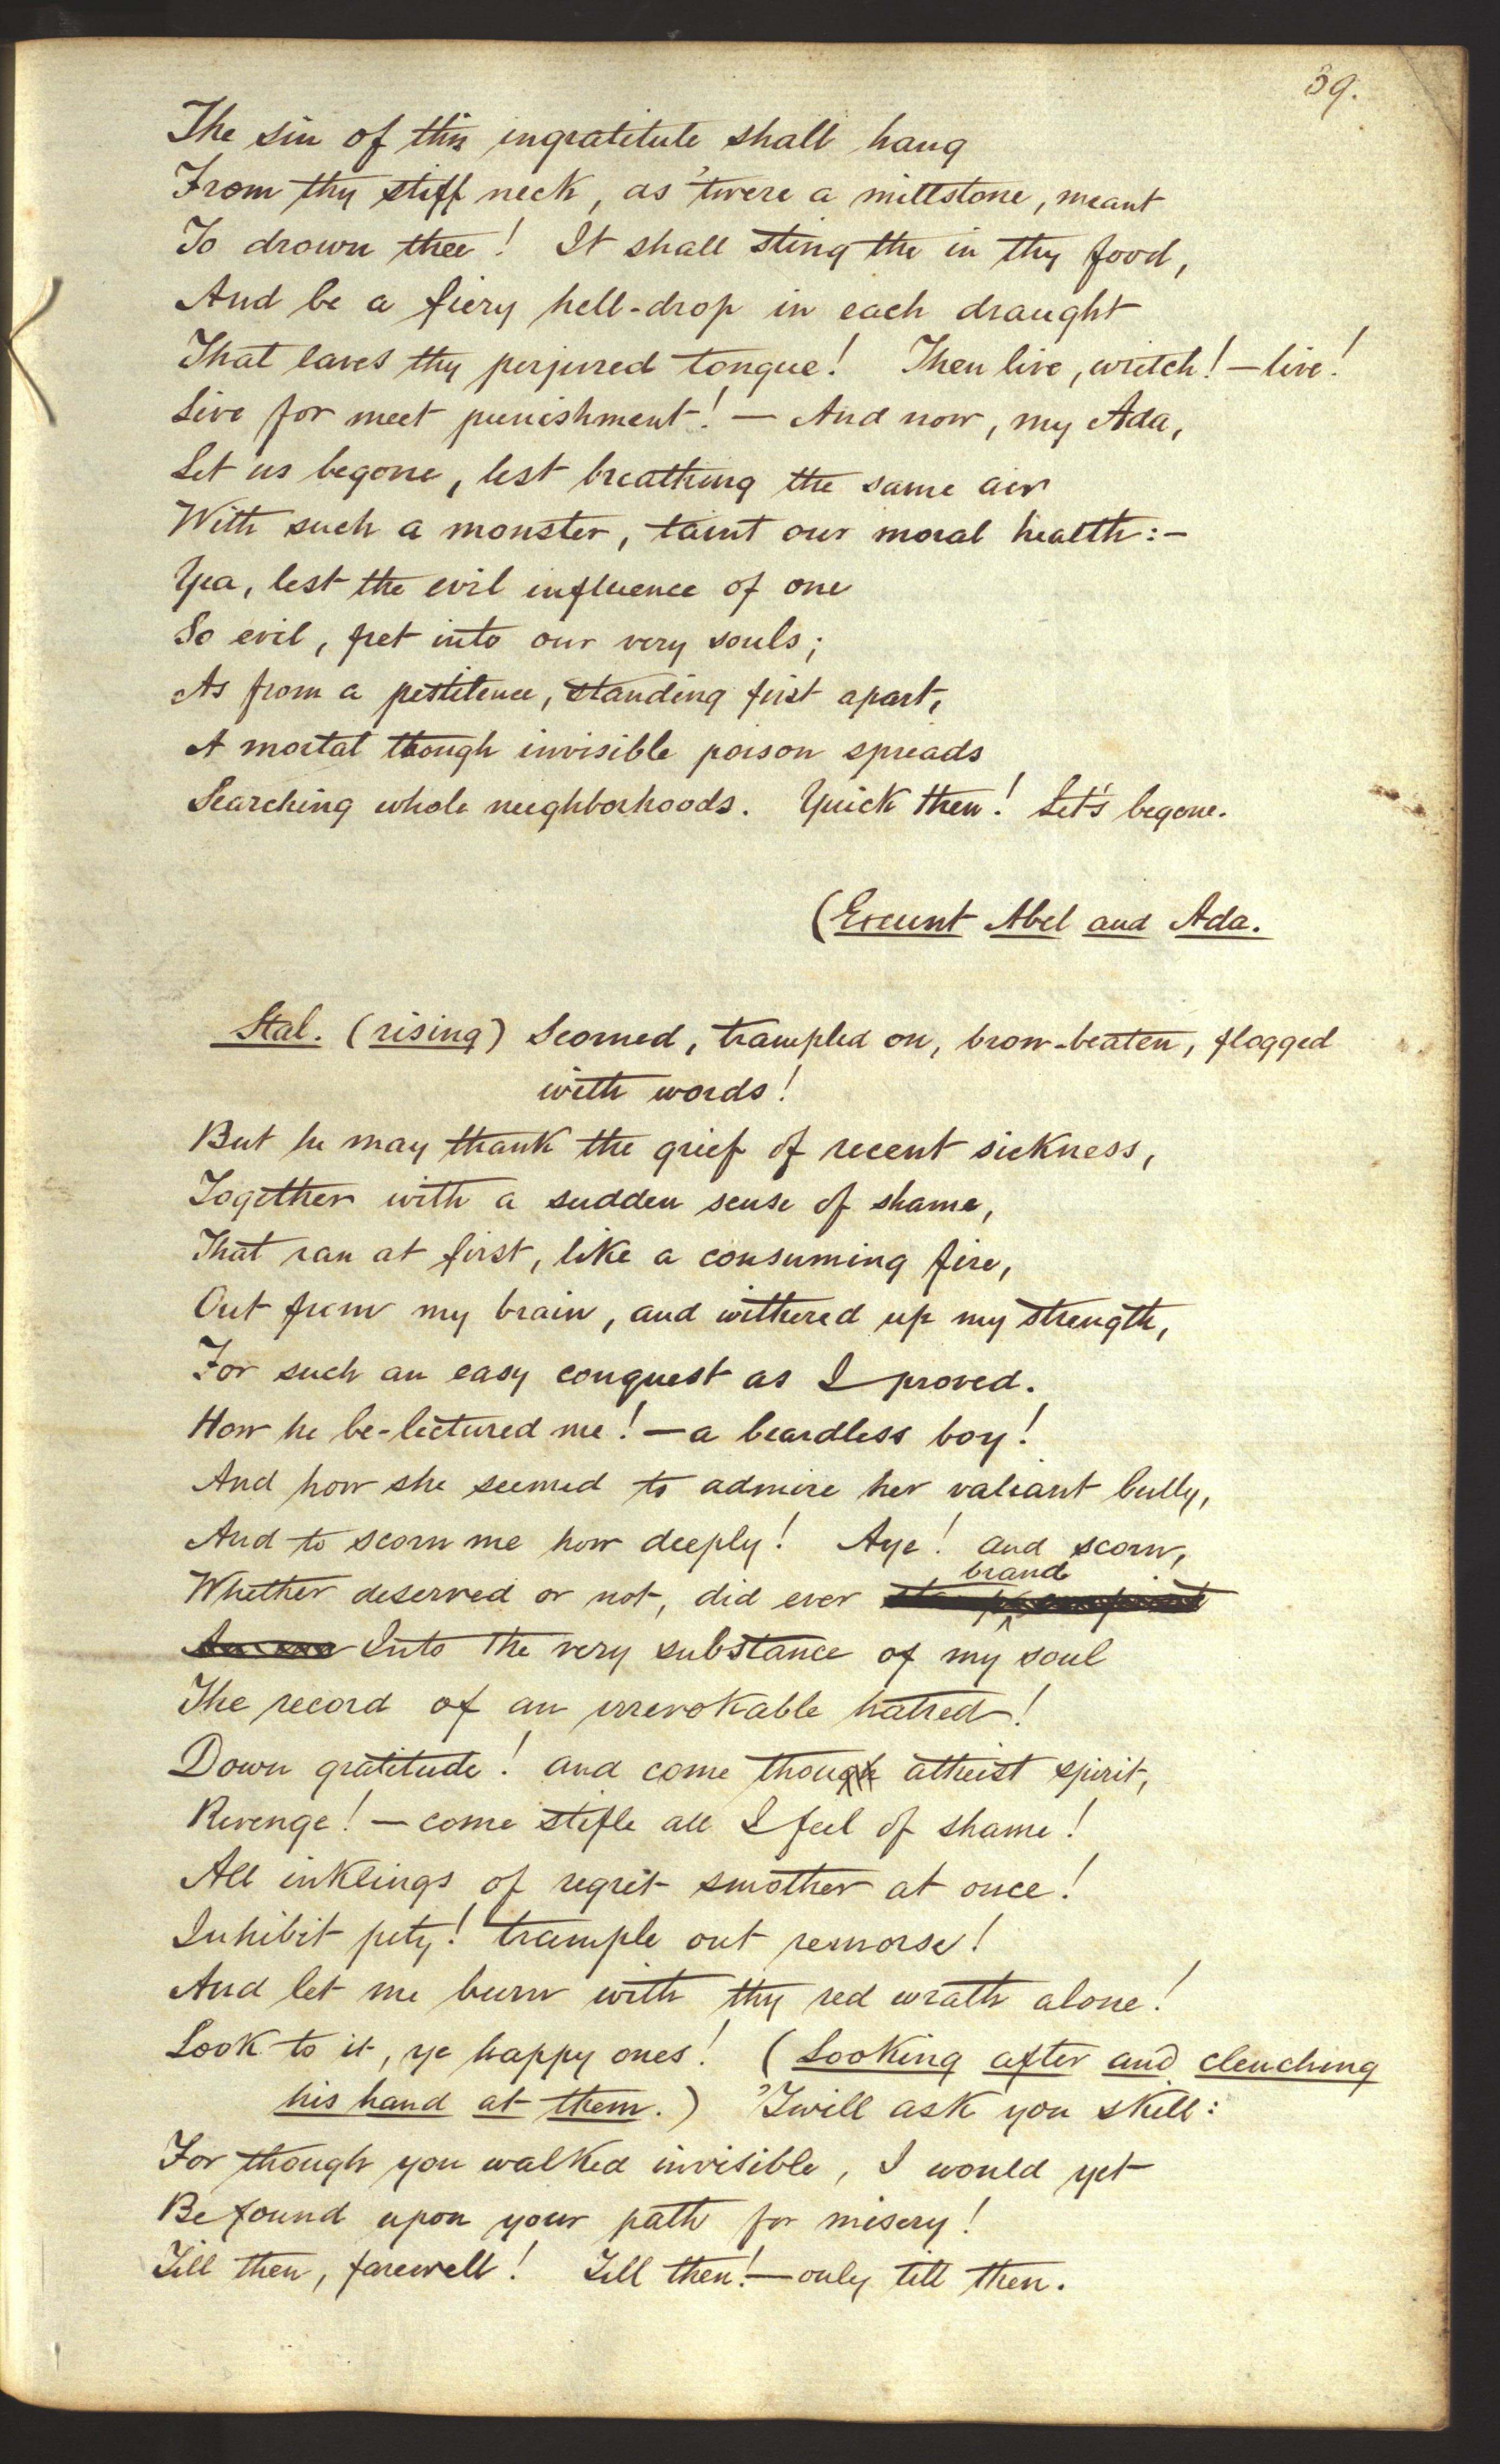 39.
The sin of this ingratitute shall hang
From thy stiff neck, as 'twere a millstone, meant
To drown thee! It shall sting the in thy food,
And be a fiery hell-drop in each draught
That laves thy perjured tongue! Then live, wretch! — live!
Live for meet punishment! — And now, my Ada,
Let us begone, lest breathing the same air
With such a monster, taint our moral health:—
Yea, lest the evil influence of one
So evil, fret into our very souls;
As from a pestilence, standing first apart,
A mortal though invisible poison spreads
Searching whole neighborhoods. Quick then! Let's begone.
(Exeunt Abel and Ada.
Stal. (rising) Scorned, trampled on, brow-beaten, flogged
with words!
But he may thank the grief of recent sickness,
Together with a sudden sense of shame,
That ran at first, like a consuming fire,
Out from my brain, and withered up my strength,
For such an easy conquest as I proved.
How he be-lectured me! — a beardless boy!
And how she seemed to admire her valiant bully,
And to scorn me how deeply! Aye! and scorn,
brand
Whether deserved or not, did ever
Into the very substance of my soul
The record of an irrevokable hatred!
Down gratitude! and come thou atheist spirit,
Revenge! — come stifle all I feel of shame!
All inklings of regret smother at once!
Inhibit pity! trample out remorse!
And let me burn with thy red wrath alone!
Look to it, ye happy ones! (Looking after and clenching
his hand at them.) 'Twill ask you skill:
For though you walked invisible, I would yet
Be found upon your path for misery!
Till then, farewell! Till then! — only till then.